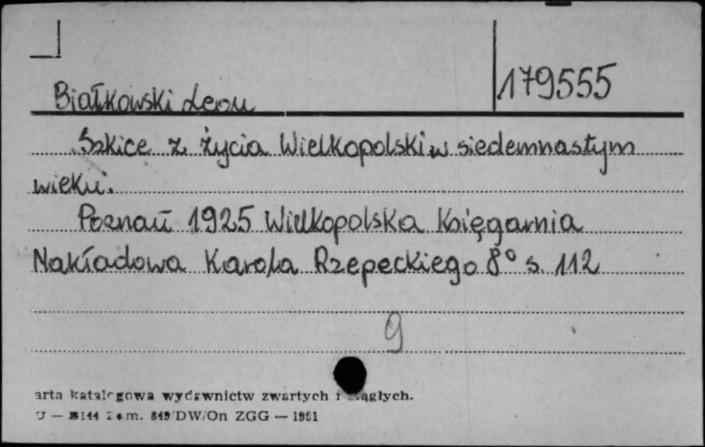 179555
Białkowski Leon
Szkice z życia Wielkopolski w siedemnastym
wieku.
Poznań 1925 Wielkopolska Księgarnia
Nakładowa Karola Rzepeckiego 8° s. 112
9
arta katalogowa wydawnictw zwartych i ciągłych.
U — 144 Zam. 849/DW/On ZGG — 1951